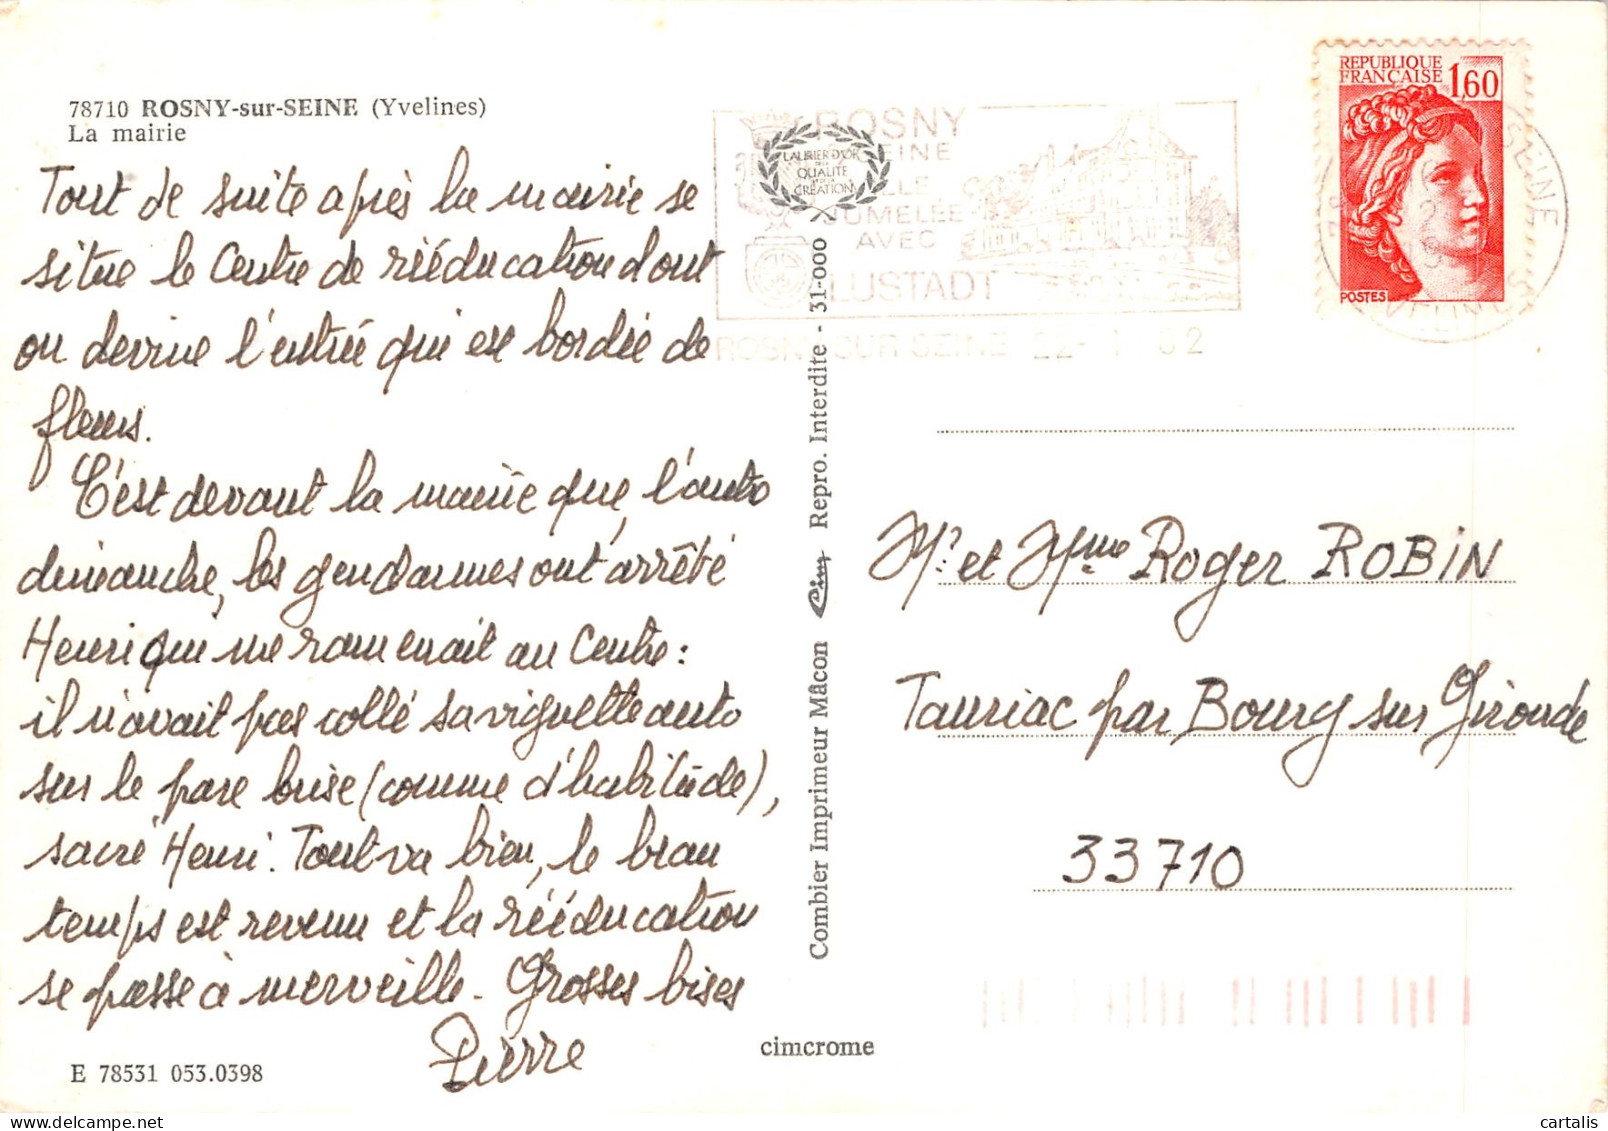 78710 ROSNY-sur-SEINE (Yvelines)
La mairie
Tout de suite après la mairie se
situe le Centre de rééducation dont
on devine l'entrée qui est bordée de
fleurs.
C'est devant la mairie que, l'auto
dimanche, les gendarmes ont arrêté
Henri qui me ramenait au Centre :
il n'avait pas collé sa vignette auto
sur le pare brise (comme d'habitude),
sacré Henri. Tout va bien, le beau
temps est revenu et la rééducation
se passe à merveille - Grosses bises
Pierre
E 78531 053.0398
cimcrome
Combier Imprimeur Mâcon Cim Repro. Interdite - 31-000
LAURIER D'OR
DE LA
QUALITÉ
CRÉATION
ROSNY
SEINE
VILLE
JUMELÉE
AVEC
LUSTADT
ROSNY SUR SEINE 22-
REPUBLIQUE
FRANÇAISE 1,60
POSTES
SEINE
YVELINES
Mr. et Mme Roger ROBIN
Tauriac par Bourg sur Gironde
33710
cartalis sur www.delcampe.net